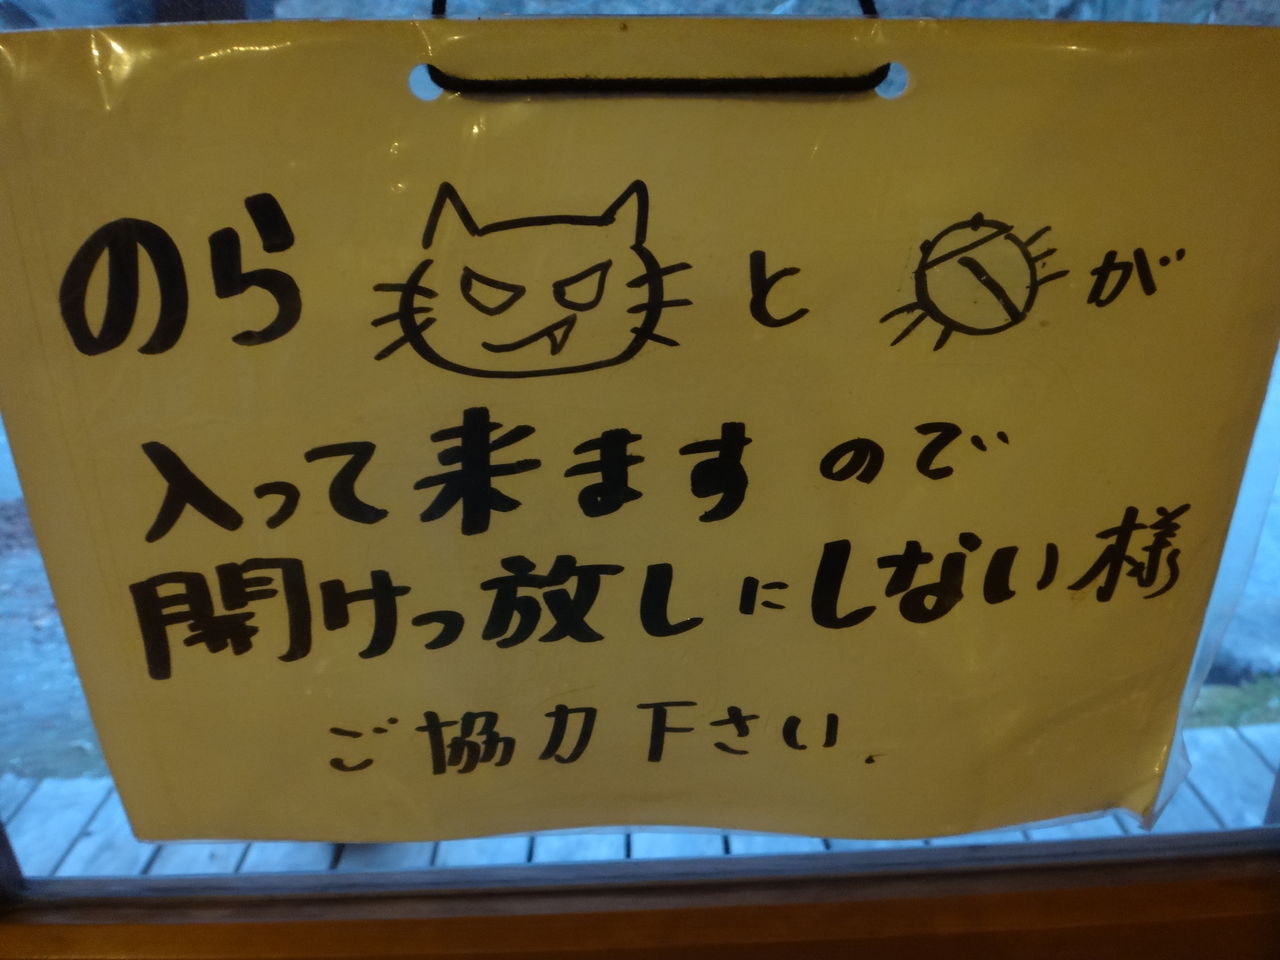 のら と が
入って来ますので
開けっ放しにしない様
ご協力下さい.